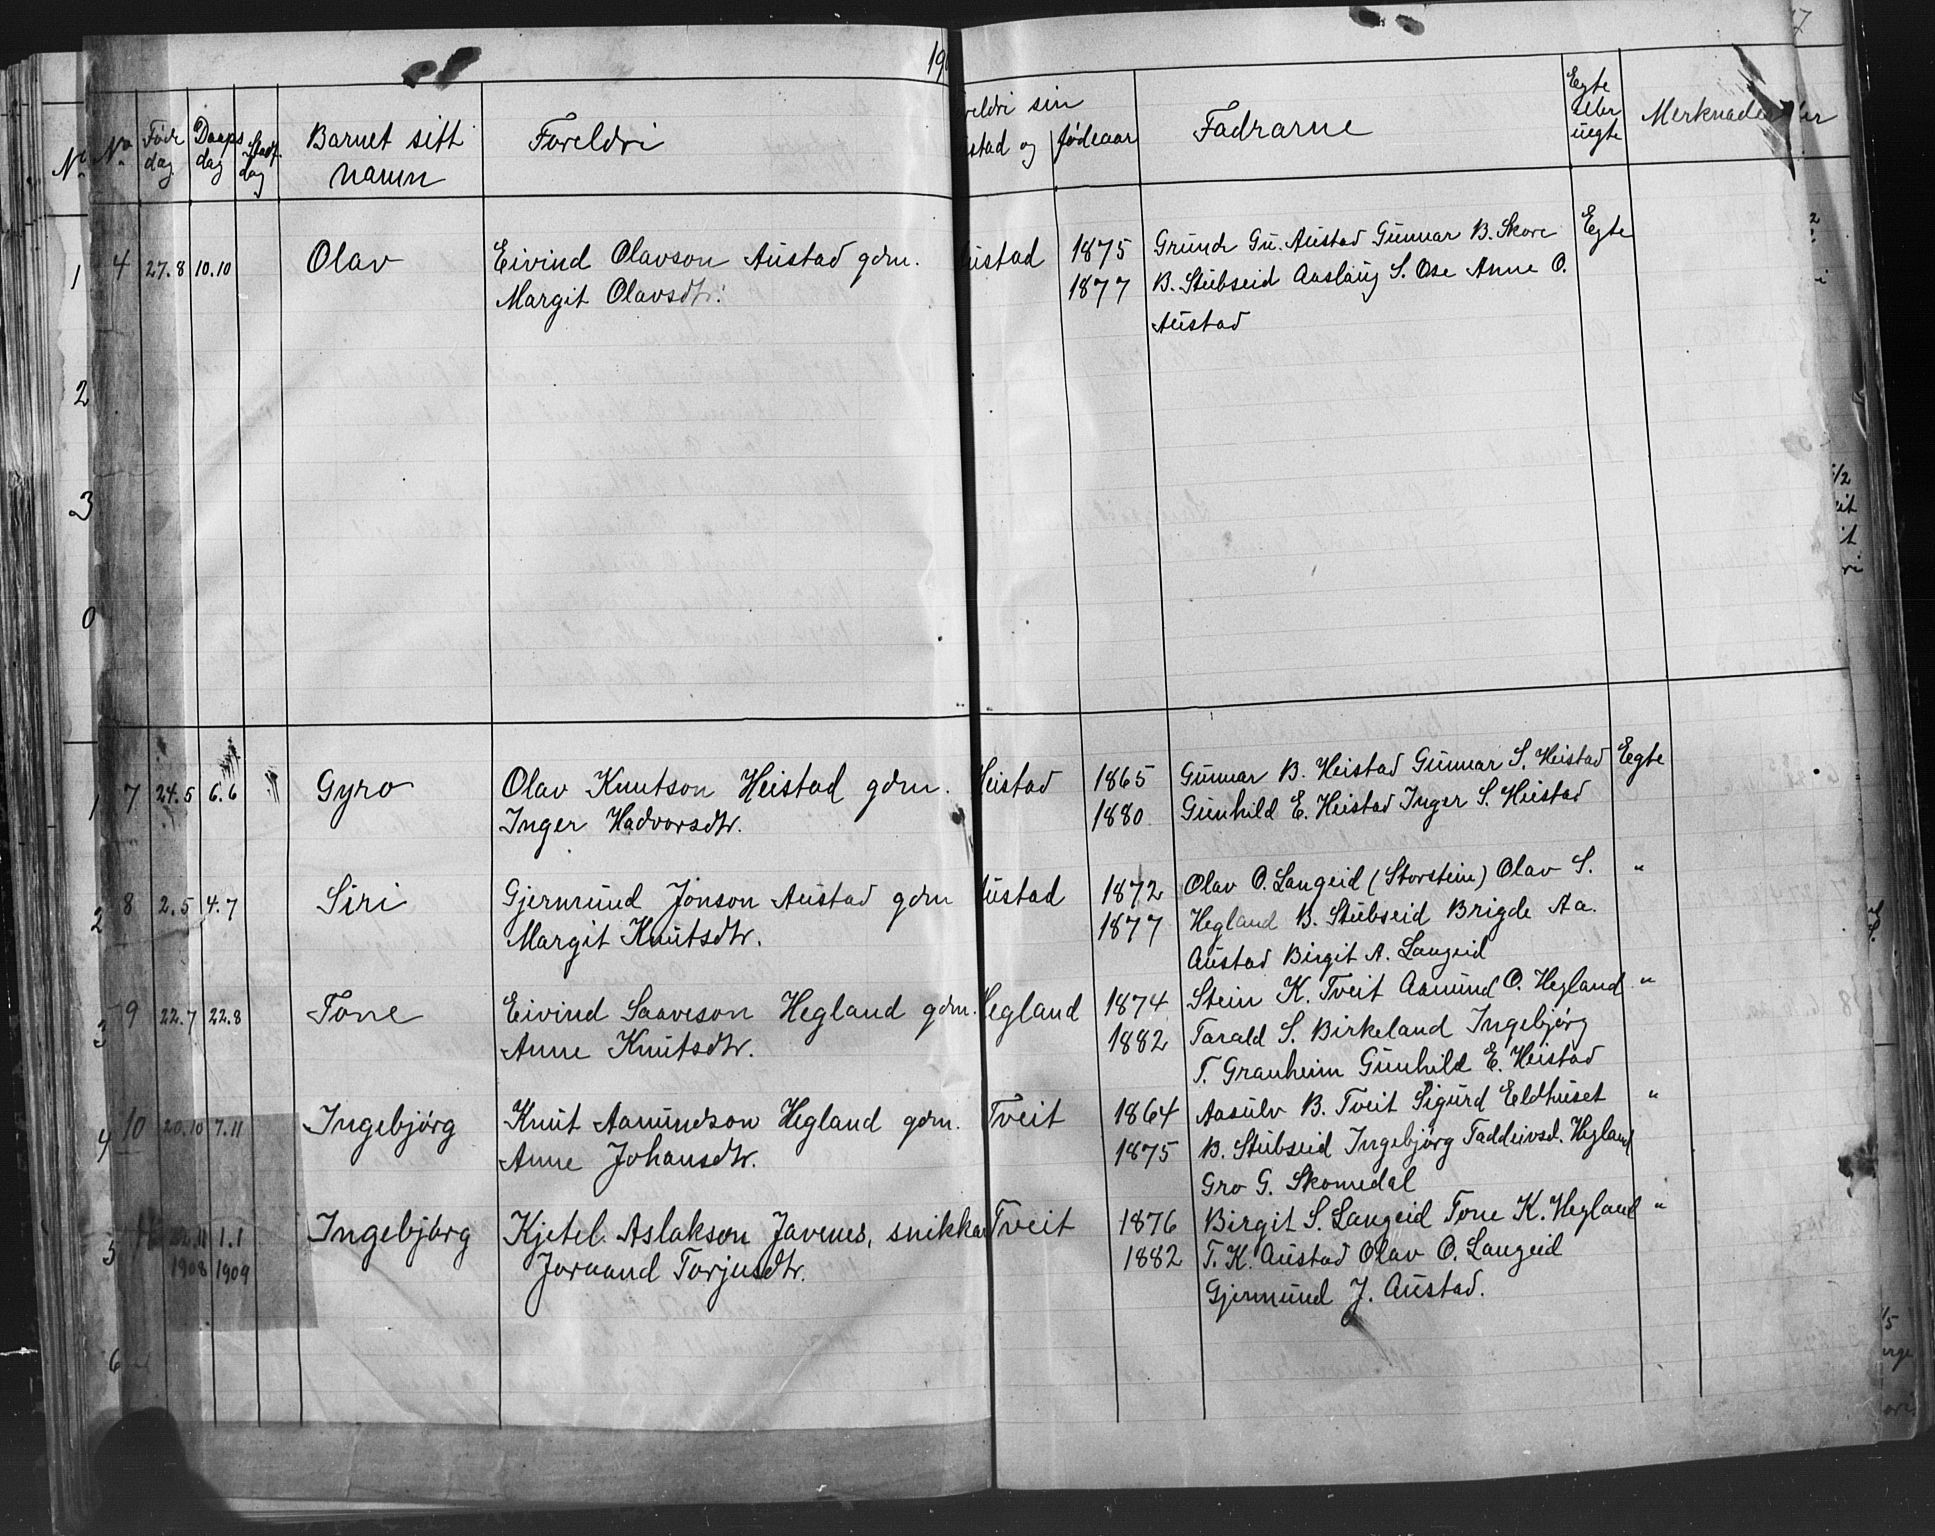 17
No. Føde dag Daaps dag Stadf. dag Barnet sitt namn Foreldri Foreldri sin Austad og fødeaar Fadrarne Egte eller uegte Merknader
4 27.8 10.10 Olav Eivind Olavson Austad gdm. Austad 1875 Gunde Gu. Austad Gunnar B. Skore Egte
Margit Olavsdtr. 1877 B. Stubseid Aaslaug S. Ose Anne O.
Austad
7 24.5 6.6 Gyro Olav Knutson Heistad gdm. Heistad 1865 Gunnar B. Heistad Gunnar S. Heistad Egte
Inger Hadvorsdtr. 1880 Gunhild E. Heistad Inger S. Heistad
8 2.5 4.7 Siri Gjermund Jonson Austad gdm Austad 1872 Olav O. Langeid (Storstein) Olav S. "
Margit Knutsdtr. 1877 Hegland B. Stubseid Brigde Aa.
Austad Birgit A. Langeid
9 22.7 22.8 Tone Eivind Saaveson Hegland gdm. Hegland 1874 Stein K. Tveit Aamund O. Hegland "
Anne Knutsdtr. 1882 Tarald S. Birkeland Ingebjørg
T. Granheim Gunhild E. Heistad
10 20.10 7.11 Ingebjørg Knut Aamundson Hegland gdm. Tveit 1864 Aasulv B. Tveit Sigurd Eldhuset "
Anne Johansdtr. 1875 B. Stubseid Ingebjørg Taddeivsd. Hegland
Gro G. Skomedal
11 22.11 1.1 Ingebjørg Kjetel Aslakson Javenes, snikkar Tveit 1876 Birgit S. Langeid Tone K. Hegland "
1908 1909 Joraand Torjusdtr. 1882 T. K. Austad Olav O. Langeid
Gjermund J. Austad.